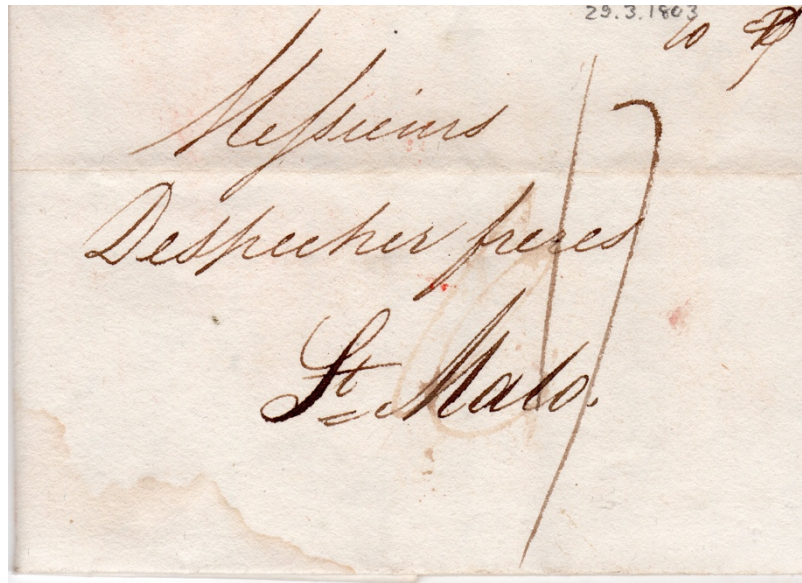 29.3.1803
10
Messieurs
Despecher freres
17
St Malo.